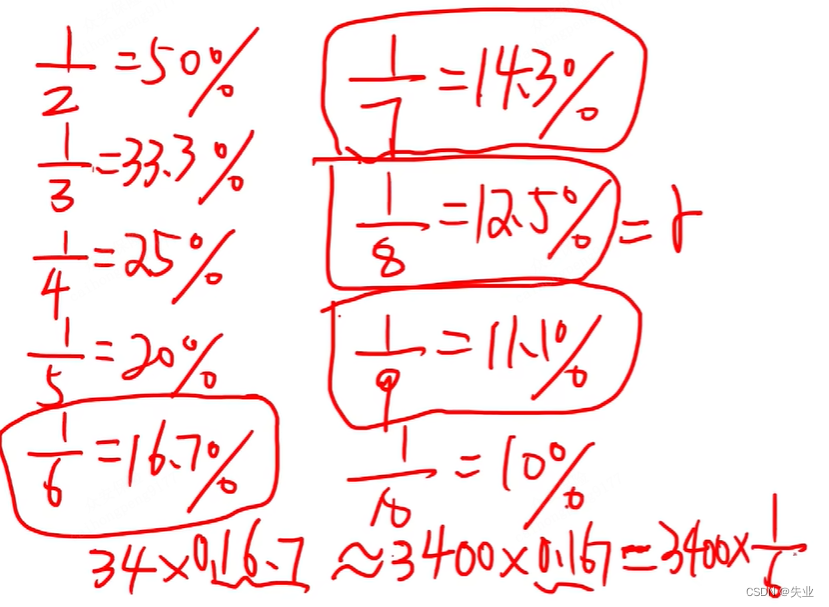 1/2 = 50%
1/3 = 33.3%
1/4 = 25%
1/5 = 20%
1/6 = 16.7%
1/7 = 14.3%
1/8 = 12.5% = r
1/9 = 11.1%
1/10 = 10%
34×0.16.7 ≈ 3400×0.167 = 3400×1/6
CSDN @失业